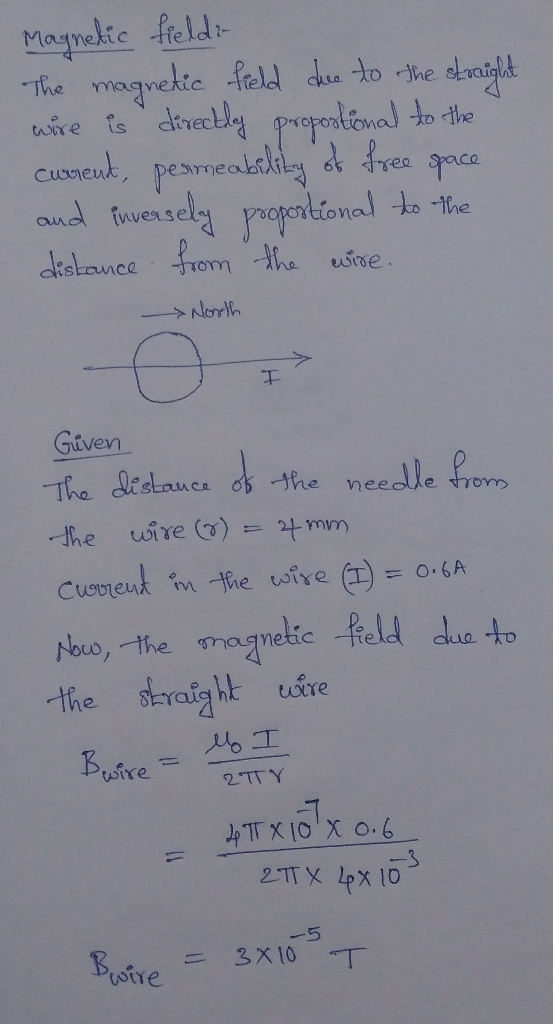 Magnetic field:-
The magnetic field due to the straight
wire is directly proportional to the
current, permeability of free space
and inversely proportional to the
distance from the wire.
→ North
I
Given
The distance of the needle from
the wire (r) = 4 mm
current in the wire (I) = 0.6A
Now, the magnetic field due to
the straight wire
Bwire = μ0 I / 2πr
= 4π×10^-7 × 0.6 / 2π× 4×10^-3
Bwire = 3×10^-5 T